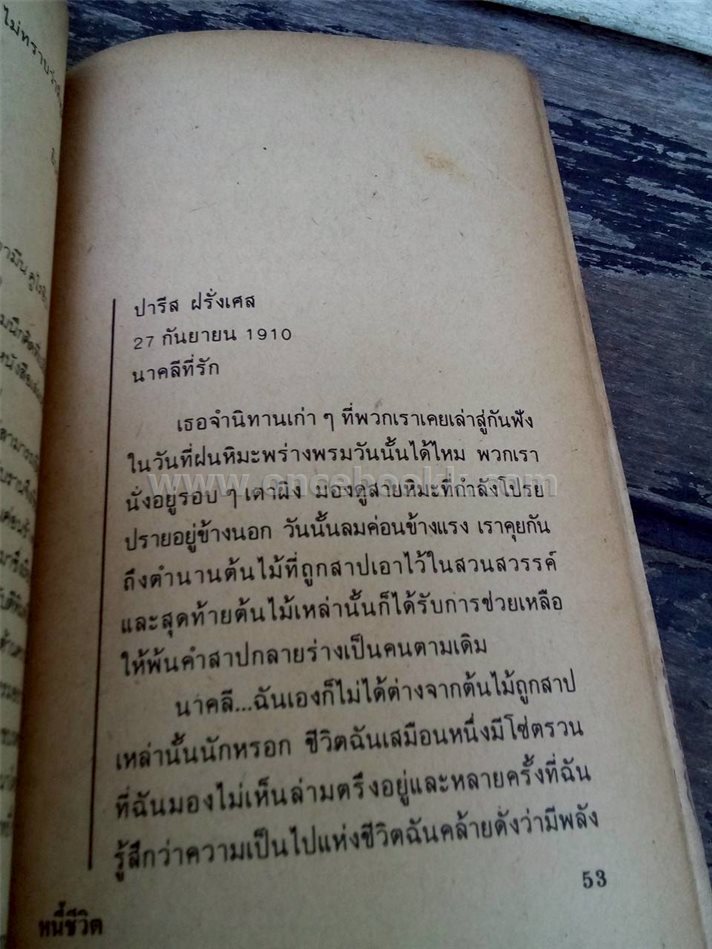 ไม่ทราบว่า
ปารีส ฝรั่งเศส
27 กันยายน 1910
นาคลีที่รัก
เธอจำนิทานเก่า ๆ ที่พวกเราเคยเล่าสู่กันฟัง
ในวันที่ฝนหิมะพร่างพรมวันนั้นได้ไหม พวกเรา
นั่งอยู่รอบ ๆ เตาผิง มองดูสายหิมะที่กำลังโปรย
ปรายอยู่ข้างนอก วันนั้นลมค่อนข้างแรง เราคุยกัน
ถึงตำนานต้นไม้ที่ถูกสาปเอาไว้ในสวนสวรรค์
และสุดท้ายต้นไม้เหล่านั้นก็ได้รับการช่วยเหลือ
ให้พ้นคำสาปกลายร่างเป็นคนตามเดิม
นาคลี...ฉันเองก็ไม่ได้ต่างจากต้นไม้ถูกสาป
เหล่านั้นนักหรอก ชีวิตฉันเสมือนหนึ่งมีโซ่ตรวน
ที่ฉันมองไม่เห็นล่ามตรึงอยู่และหลายครั้งที่ฉัน
รู้สึกว่าความเป็นไปแห่งชีวิตฉันคล้ายดังว่ามีพลัง
53
หนี้ชีวิต